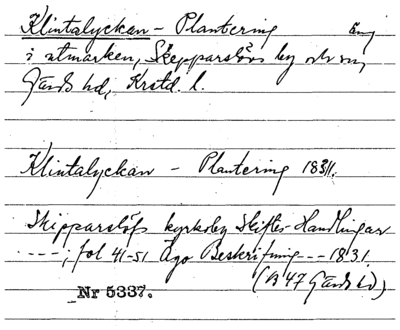 Klintalyckan - Plantering äng
i utmarken, Skepparslövs by och sn,
Gärds hd, Krstd. l.
Klintalyckan - Plantering 1831.
Skipparslöfs kyrkoby Skiftes-Handlingar
----, fol 41-51 Ägo Beskrifning --- 1831.
(B 47 Gärds hd)
Nr 5337.